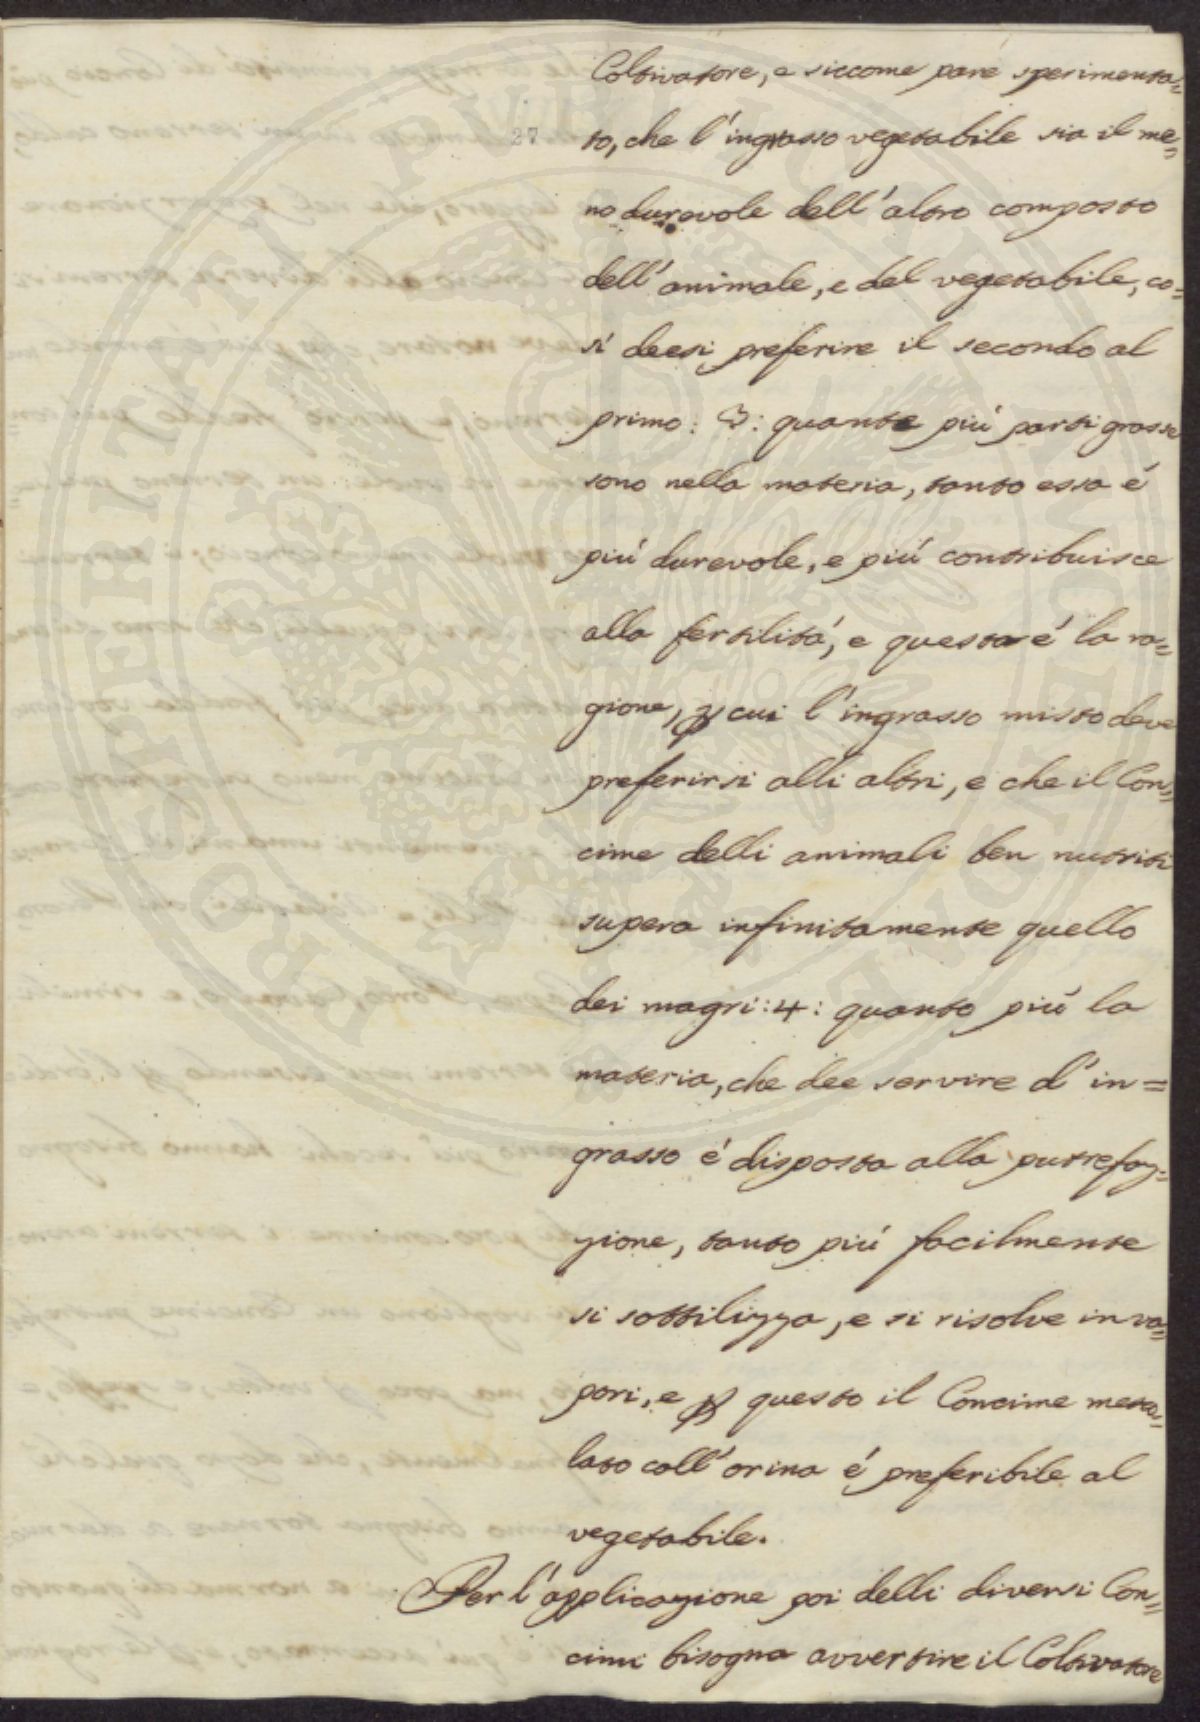 Coltivatore, e siccome pare sperimenta=
27 to, che l'ingrasso vegetabile sia il me=
no durevole dell'altro composto
dell'animale, e del vegetabile, co=
sì deesi preferire il secondo al
primo: 3: quante più parti grasse
sono nella materia, tanto essa é
piú durevole, e piú contribuisce
alla fertilitá, e questa é la ra=
gione, ꝑ cui l'ingrasso misto deve
preferirsi alli altri, e che il Con=
cime delli animali ben nutriti
supera infinitamente quello
dei magri: 4: quanto piú la
materia, che dee servire d'in=
grasso é disposta alla putrefaz=
zione, tanto piú facilmente
si sottilizza, e si risolve in va=
pori, e ꝑ questo il Concime mesco=
lato coll'orina é preferibile al
vegetabile.
Per l'applicazione poi delli diversi Con=
cimi bisogna avvertire il Coltivatore
PROSPERITATI PVBLICAE AVGENDAE